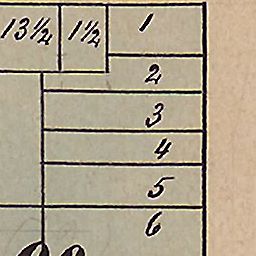 13½ 1½ 1
2
3
4
5
6